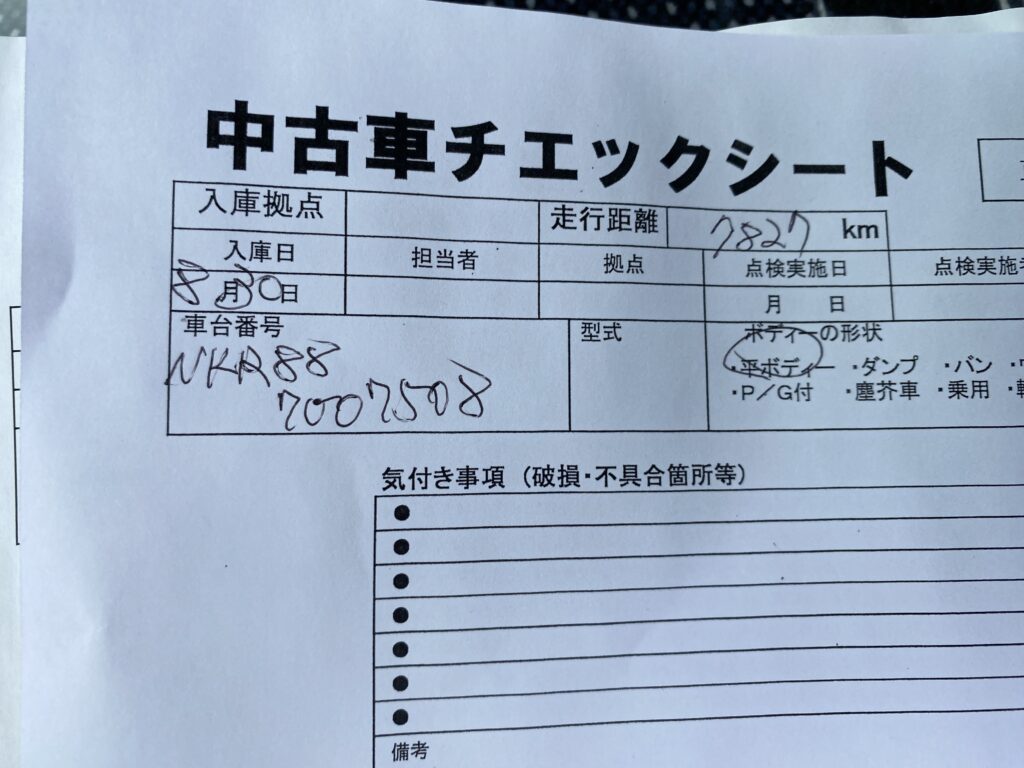 中古車チエックシート
入庫拠点
走行距離 7827 km
入庫日 担当者 拠点 点検実施日 点検実施
8月30日 月 日
車台番号 型式 ボディーの形状
NKR88
7007508
・平ボディー ・ダンプ ・バン
・P/G付 ・塵芥車 ・乗用
気付き事項（破損・不具合箇所等）
●
●
●
●
●
●
●
備考